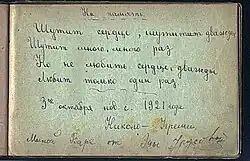 На память
Шутит сердце, шутит дважды
Шутит много, много раз
Но не любите сердце, дважды
Любит только один раз
3го октября нов с. 1921 года
Николо-
Милой от